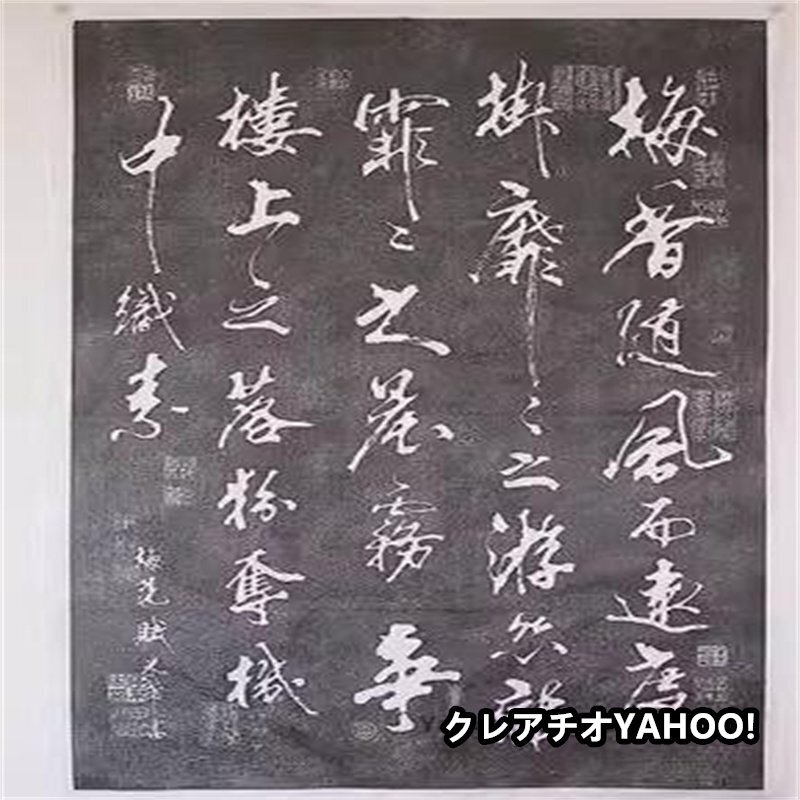 梅香隨風而遠度
掛靡〻之游絲雜
霏〻之晨霧爭
樓上之落粉奪機
中織素
梅花賦
クレアチオYAHOO!